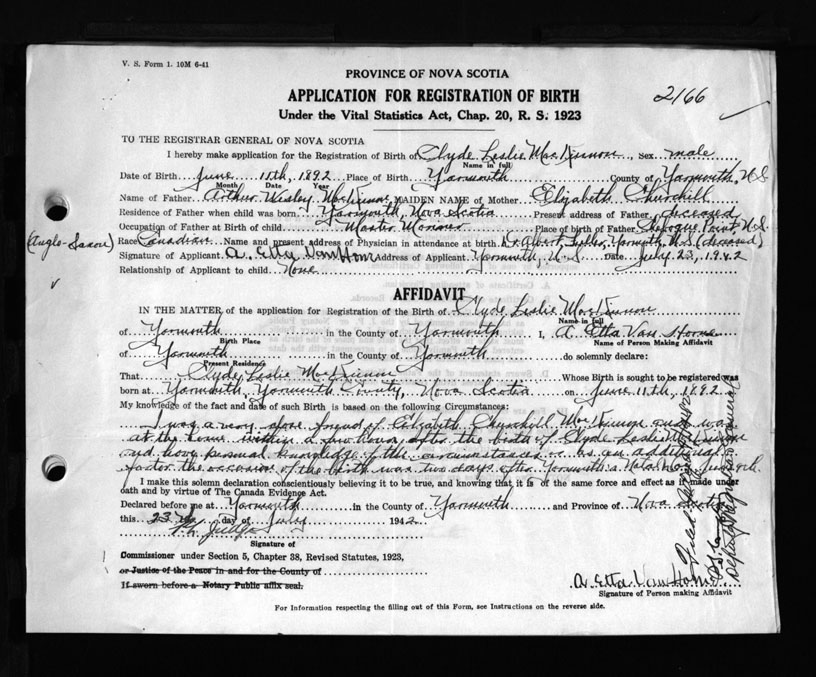 V. S. Form 1. 10M 6-41
PROVINCE OF NOVA SCOTIA
APPLICATION FOR REGISTRATION OF BIRTH
2166
Under the Vital Statistics Act, Chap. 20, R. S. 1923
TO THE REGISTRAR GENERAL OF NOVA SCOTIA
I hereby make application for the Registration of Birth of Clyde Leslie MacKinnon, Sex male
Name in full
Date of Birth June 11th, 1892 Place of Birth Yarmouth County of Yarmouth, N.S
Month Date Year
Name of Father Arthur Wesley MacKinnon, MAIDEN NAME of Mother Elizabeth Churchill
Residence of Father when child was born Yarmouth, Nova Scotia Present address of Father deceased
Occupation of Father at Birth of child Master Place of birth of Father Chebogue Point N.S.
(Anglo-Saxon) Race Canadian Name and present address of Physician in attendance at birth Yarmouth, N.S (deceased)
Signature of Applicant A. Etta Van Horne Address of Applicant Yarmouth, N.S. Date July 23, 1942
Relationship of Applicant to child None
AFFIDAVIT
IN THE MATTER of the application for Registration of the Birth of Clyde Leslie MacKinnon
Name in full
of Yarmouth in the County of Yarmouth I, A. Etta Van Horne
Birth Place Name of Person Making Affidavit
of Yarmouth in the County of Yarmouth do solemnly declare:
Present Residence
That Clyde Leslie MacKinnon Whose Birth is sought to be registered was
born at Yarmouth, Yarmouth County, Nova Scotia on June 11th, 1892
My knowledge of the fact and date of such Birth is based on the following Circumstances:
I was a very close friend of Elizabeth Churchill MacKinnon and was
at the home within a few hours after the birth of Clyde Leslie MacKinnon
and have personal knowledge of the circumstances as an additional
factor the occasion of the birth was two days after Yarmouth's June 9th.
I make this solemn declaration conscientiously believing it to be true, and knowing that it is of the same force and effect as if made under
oath and by virtue of The Canada Evidence Act.
Declared before me at Yarmouth in the County of Yarmouth and Province of Nova Scotia
this 23rd day of July 1942
Signature of
Commissioner under Section 5, Chapter 38, Revised Statutes, 1923,
or Justice of the Peace in and for the County of
If sworn before a Notary Public affix seal.
A. Etta Van Horne
Signature of Person making Affidavit
For Information respecting the filling out of this Form, see Instructions on the reverse side.